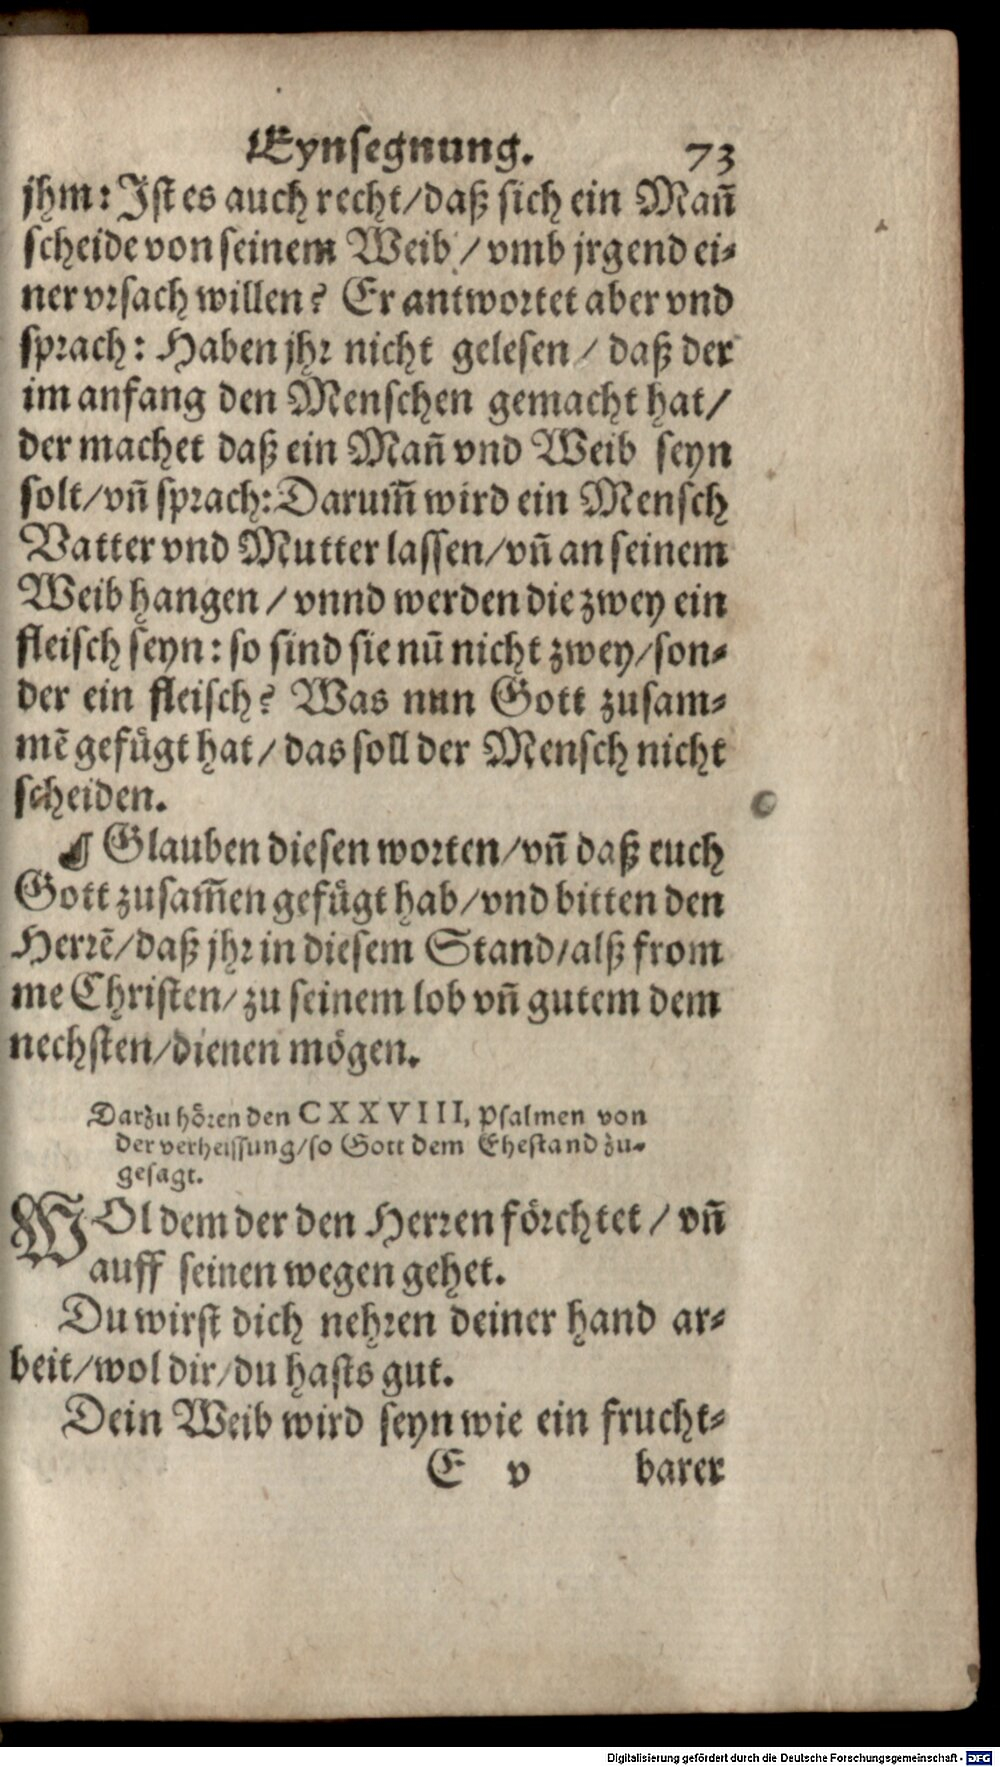 Eynsegnung. 73
jhm: Ist es auch recht/daß sich ein Mañ
scheide von seinem Weib / vmb jrgend ei-
ner vrsach willen? Er antwortet aber vnd
sprach: Haben jhr nicht gelesen / daß der
im anfang den Menschen gemacht hat/
der machet daß ein Mañ vnd Weib seyn
solt/vñ sprach: Darum̃ wird ein Mensch
Vatter vnd Mutter lassen/vñ an seinem
Weib hangen / vnnd werden die zwey ein
fleisch seyn: so sind sie nũ nicht zwey/son-
der ein fleisch? Was nun Gott zusam-
mẽ gefügt hat / das soll der Mensch nicht
scheiden.
¶ Glauben diesen worten/vñ daß euch
Gott zusam̃en gefügt hab/vnd bitten den
Herrẽ/daß jhr in diesem Stand/alß from
me Christen/zu seinem lob vñ gutem dem
nechsten/dienen mögen.
Darzu hören den CXXVIII, Psalmen von
der verheissung/so Gott dem Ehestand zu-
gesagt.
WOl dem der den Herren förchtet / vñ
auff seinen wegen gehet.
Du wirst dich nehren deiner hand ar-
beit/wol dir/du hasts gut.
Dein Weib wird seyn wie ein frucht-
E v barer
Digitalisierung gefördert durch die Deutsche Forschungsgemeinschaft - DFG